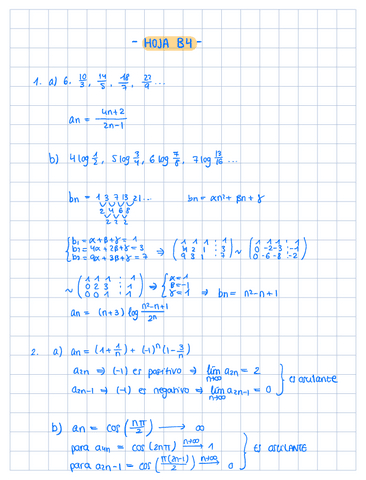 - HOJA B4 -
1. a) 6, 10/3, 14/5, 18/7, 22/9 ...
an = (4n+2)/(2n-1)
b) 4 log 1/2, 5 log 3/4, 6 log 7/8, 7 log 13/16 ...
bn = 1 3 7 13 21... bn = αn² + βn + γ
2 4 6 8
2 2 2
{ b1 = α + β + γ = 1
b2 = 4α + 2β + γ = 3
b3 = 9α + 3β + γ = 7 ⇒ (1 1 1 ⋮ 1 / 4 2 1 ⋮ 3 / 9 3 1 ⋮ 7) ~ (1 1 1 ⋮ 1 / 0 -2 -3 ⋮ -1 / 0 -6 -8 ⋮ -2)
~ (1 1 1 ⋮ 1 / 0 2 3 ⋮ 1 / 0 0 1 ⋮ 1) → { α = 1 β = -1 γ = 1 ⇒ bn = n² - n + 1
an = (n+3) log (n²-n+1)/2ⁿ
2. a) an = (1 + 1/n) + (-1)ⁿ (1 - 3/n)
a2n ⇒ (-1) es positivo ⇒ lím n→∞ a2n = 2
a2n-1 ⇒ (-1) es negativo ⇒ lím n→∞ a2n-1 = 0 } es osculante
b) an = cos (nπ/2) → ∞
para a4n = cos (2nπ) n→∞ → 1
para a2n-1 = cos (π(2n-1)/2) n→∞ → 0 } ES OSCULANTE